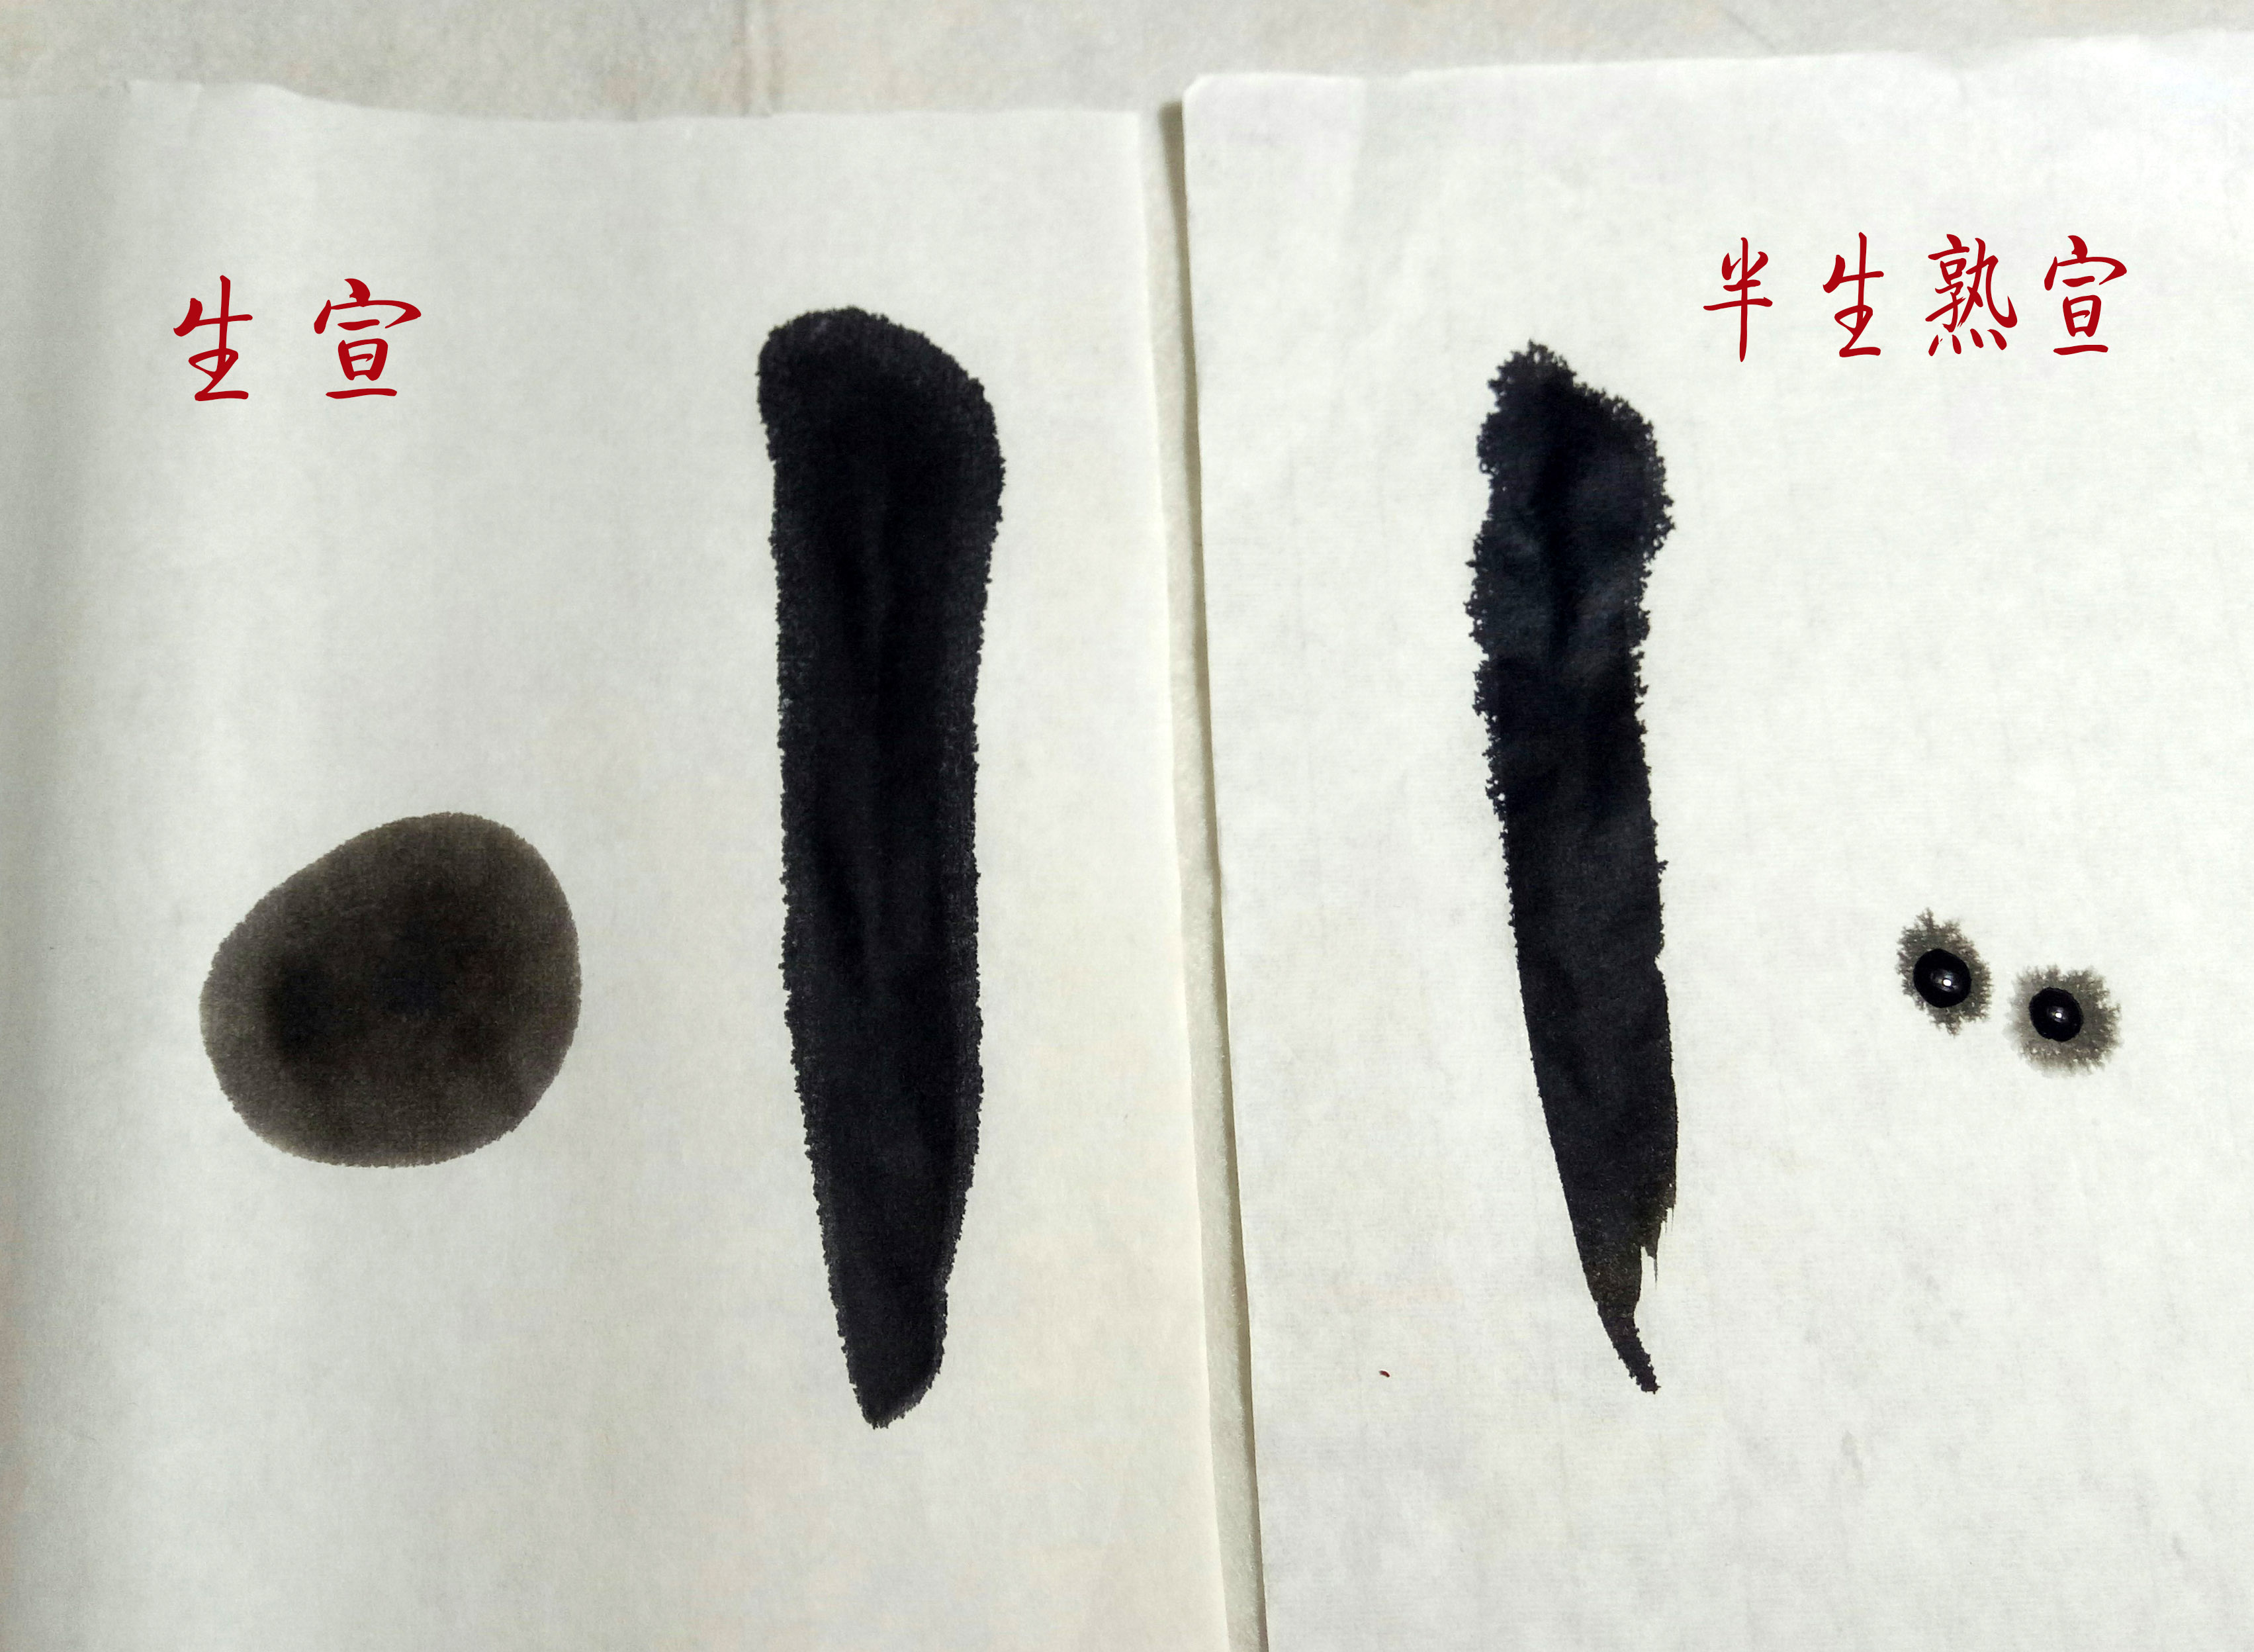 生宣
半生熟宣